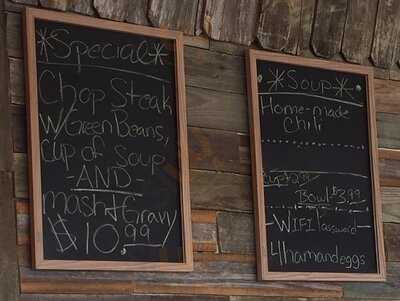 *Special*
Chop Steak
w/Green Beans,
Cup of Soup
-AND-
mash + Gravy
$10.99
*Soup*
Home-made
Chili
Cup 2.99
Bowl $3.99
-WIFI Password
4hamandeggs